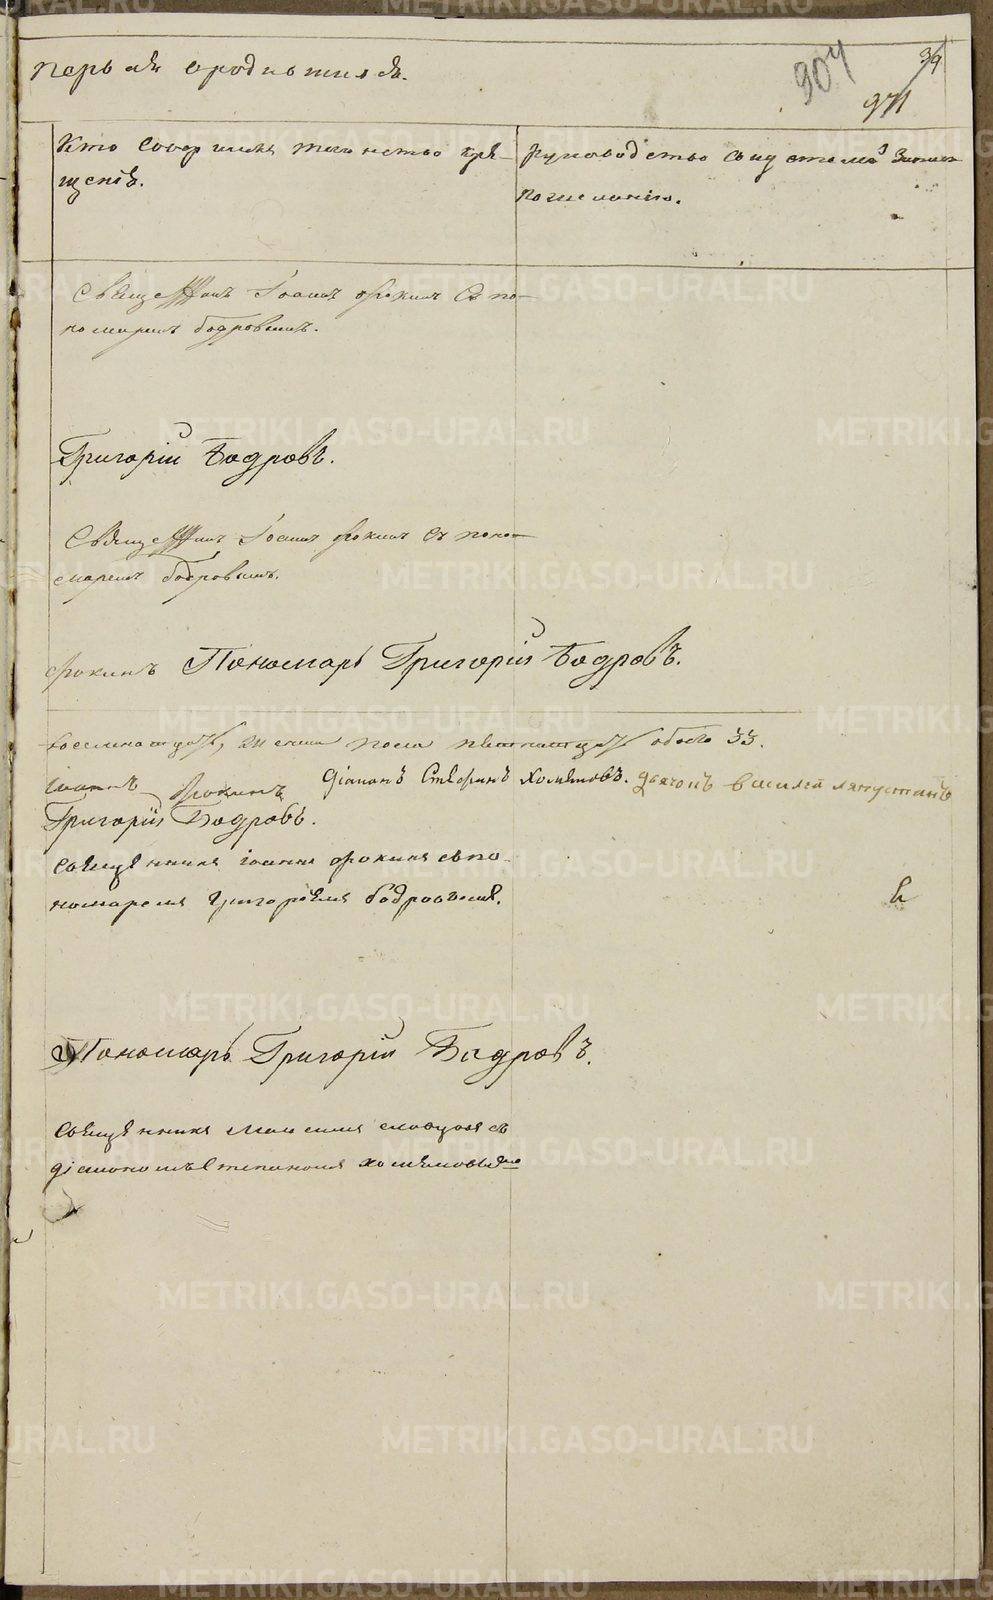 перьвая ородившихся.
904
34
971
Кто совершилъ таинство кре-
щенiя.
Рукоприкладство свидетелей записи
по желанiю.
Священникъ Iоаннъ Фокинъ съ по-
номаремъ бодровымъ.
Григорiй Бодровъ.
Священникъ Iоаннъ Фокинъ съ поно-
маремъ бодровымъ.
Фокинъ Пономарь Григорiй Бодровъ.
восемнатцать, женска пола пятнатцать обоего 33.
Iоаннъ Фокинъ Дiаконъ Стефанъ Хомяковъ. Дьячокъ Василiй Ляпустинъ
Григорiй Бодровъ.
Священникъ Iоаннъ Фокинъ съ по-
номаремъ Григорiемъ бодровымъ.
Пономарь Григорiй Бодровъ.
Священникъ съ
дiакономъ Стефаномъ хомяковымъ
METRIKI.GASO-URAL.RU